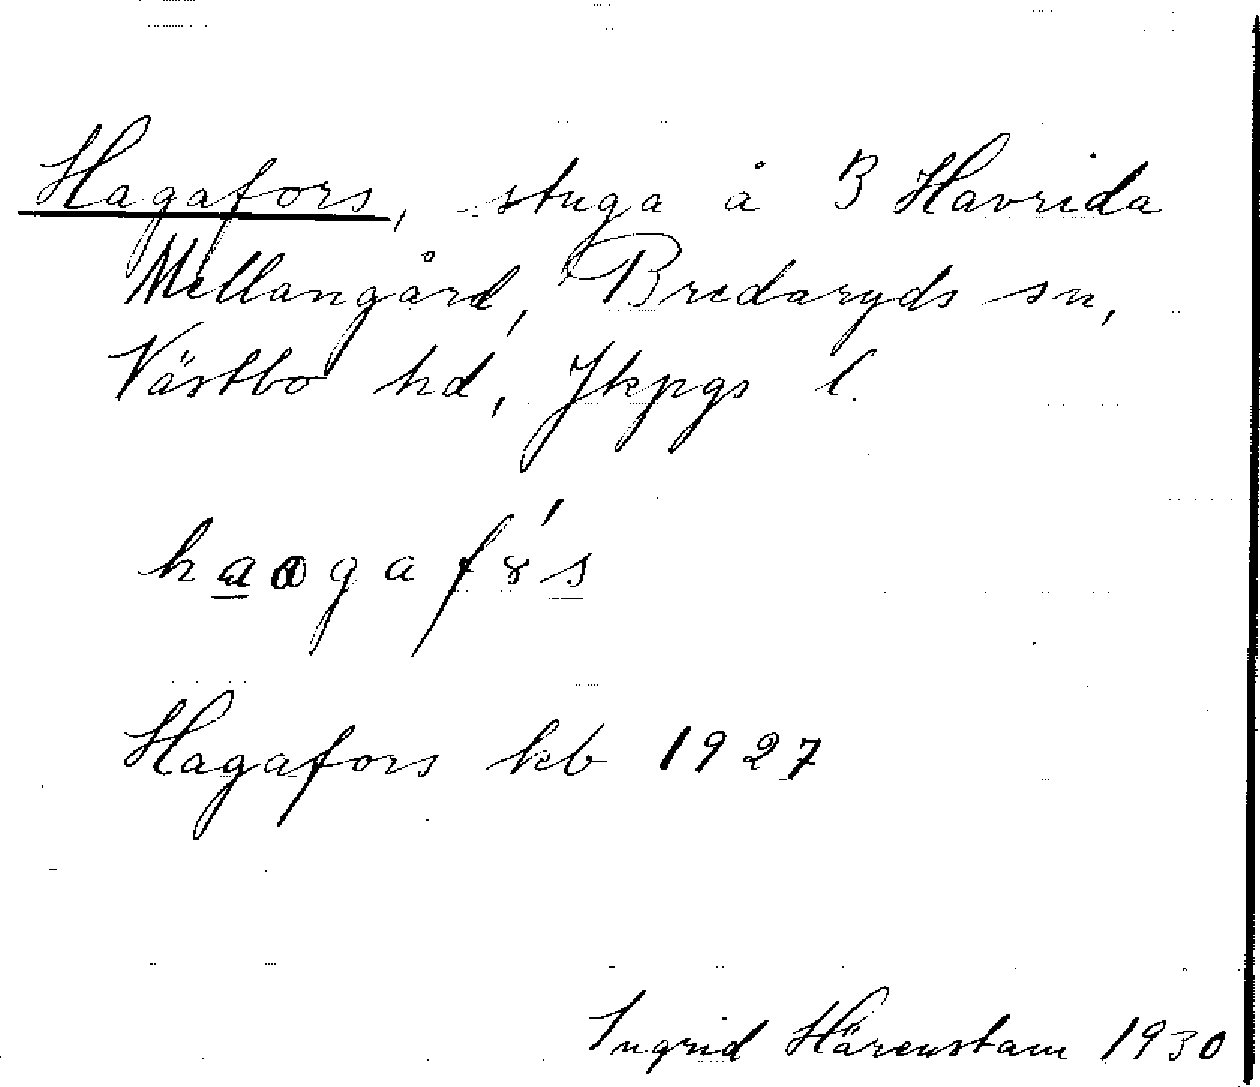 Hagafors, stuga å 3 Havrida
Mellangård, Bredaryds sn,
Västbo hd, Jkpgs l.
Hagafors kb 1927
Ingrid Härenstam 1930